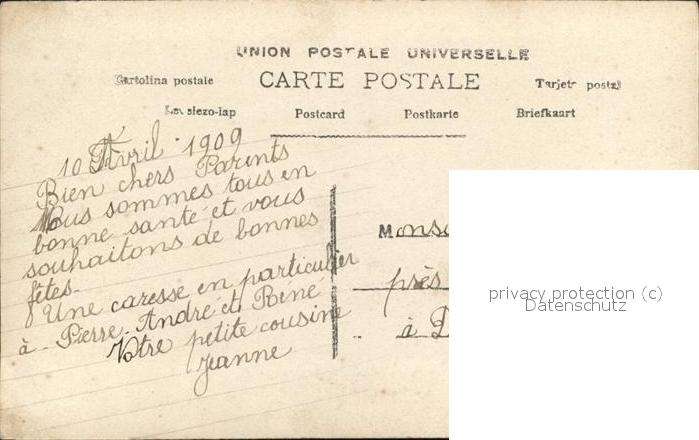 UNION POSTALE UNIVERSELLE
Cartolina postale CARTE POSTALE
Postcard Postkarte Briefkaart
10 Avril 1909
Bien chers Parents
Nous sommes tous en
bonne santé et vous
souhaitons de bonnes
fêtes.
Une caresse en particulier
à Pierre. André et Réné
Votre petite cousine
Jeanne
près
à
privacy protection (c)
Datenschutz